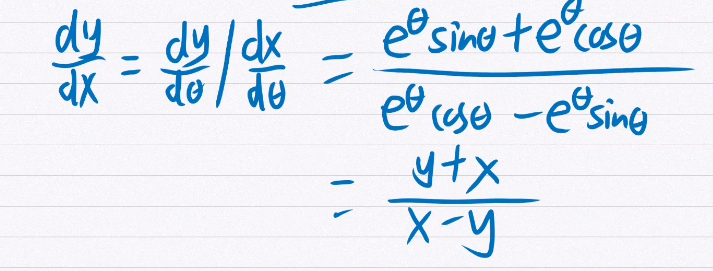 dy/dx = dy/dθ / dx/dθ = (e^θ sinθ + e^θ cosθ)/(e^θ cosθ − e^θ sinθ)
= (y+x)/(x−y)